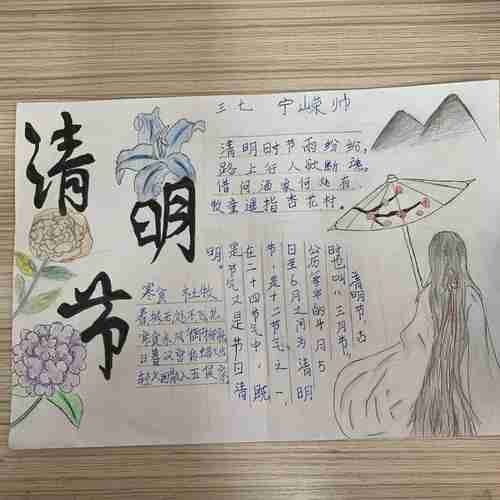 清明节
三七 宁嵘帅
清明时节雨纷纷,
路上行人欲断魂。
借问酒家何处有,
牧童遥指杏花村。
清明节古
时也叫“三月节”,
公历每年的4月5
日至6月之间为清明
节,是二十节气之一,
在二十四节气中,既
是节气又是节日清
明。
寒食 杜牧
春城无处不飞花
寒食东风御柳斜
日暮汉宫传蜡
散入五侯家